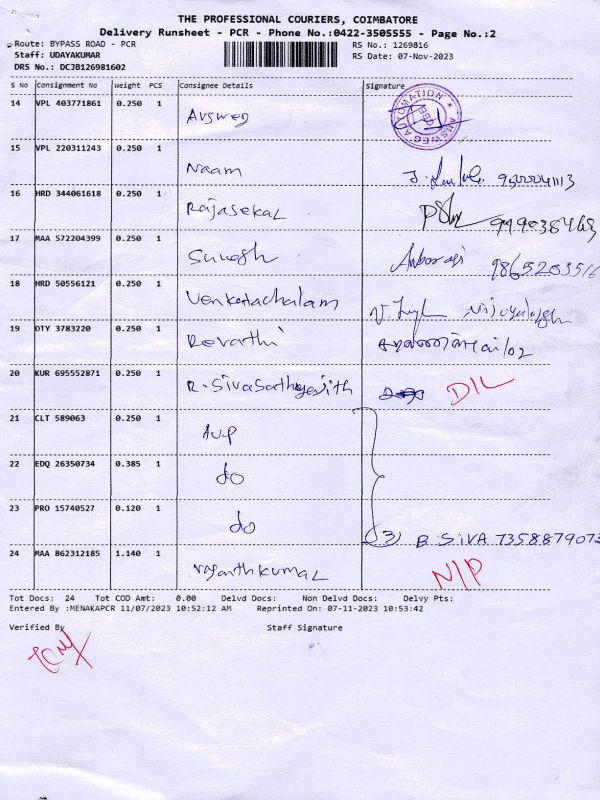 THE PROFESSIONAL COURIERS, COIMBATORE
Delivery Runsheet - PCR - Phone No.:0422-3505555 - Page No.:2
Route: BYPASS ROAD - PCR RS No.: 1269816
Staff: UDAYAKUMAR RS Date: 07-Nov-2023
DRS No.: DCJB126981602
S No Consignment No Weight PCS Consignee Details Signature
14 VPL 403771861 0.250 1 Ausweg
15 VPL 220311243 0.250 1 Naam
16 HRD 344061618 0.250 1 Rajasekar
17 MAA 572204399 0.250 1 Suresh 9865203516
18 HRD 50556121 0.250 1 Venkatachalam
19 OTY 3783220 0.250 1 Revathi
20 KUR 695552871 0.250 1 R. Sivasarthyajith D/L
21 CLT 589063 0.250 1 AVP
22 EDQ 26350734 0.385 1 do
23 PRO 15740527 0.120 1 do 3) B. SIVA 7358879073
24 MAA 862312185 1.140 1 N/P
Tot Docs: 24 Tot COD Amt: 0.00 Delvd Docs: Non Delvd Docs: Delvy Pts:
Entered By :MENAKAPCR 11/07/2023 10:52:12 AM Reprinted On: 07-11-2023 10:53:42
Verified By Staff Signature